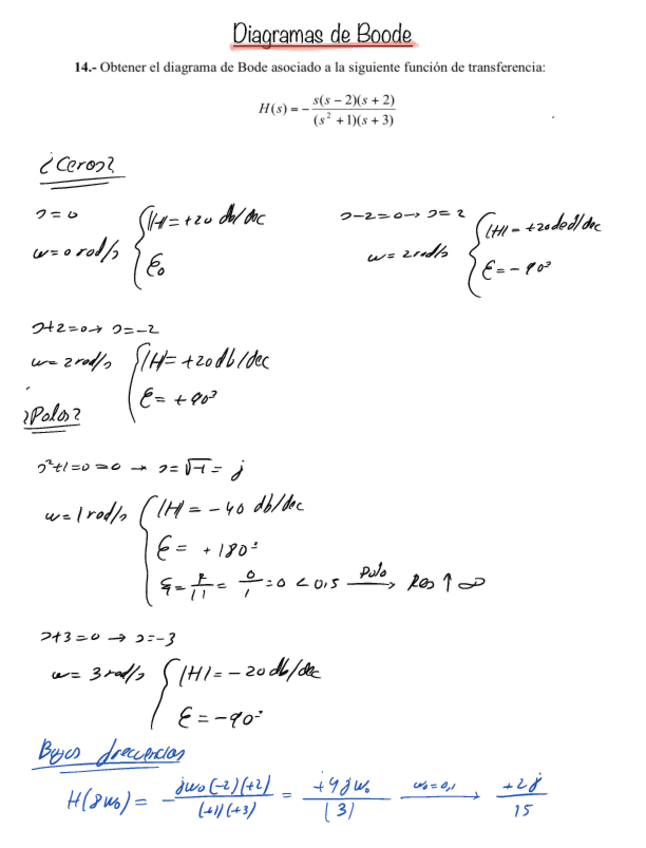 Diagramas de Boode
14.- Obtener el diagrama de Bode asociado a la siguiente función de transferencia:
H(s) = - s(s − 2)(s + 2) / (s² + 1)(s + 3)
¿Ceros?
s=0
|H|=+20 db/dec
w=0 rad/s
s-2=0→ s=2
|H|=+20 /dec
w=2rad/s
= -90º
s+2=0→ s=-2
w=2rad/s
|H|=+20db/dec
= +90º
¿Polos?
s²+1=0=0 → s=√-1= j
w=1rad/s
|H|= -40 db/dec
= +180º
= 0/1 =0 <0,5 Polo→ Res ↑ ∞
s+3=0 → s=-3
w= 3rad/s
|H|= -20db/dec
= -90º
Bajas frecuencias
H(jw₀)= - jw₀(-2)(+2) / (+1)(+3) = +4jw₀ / (3) w₀=0,1→ +2j / 15